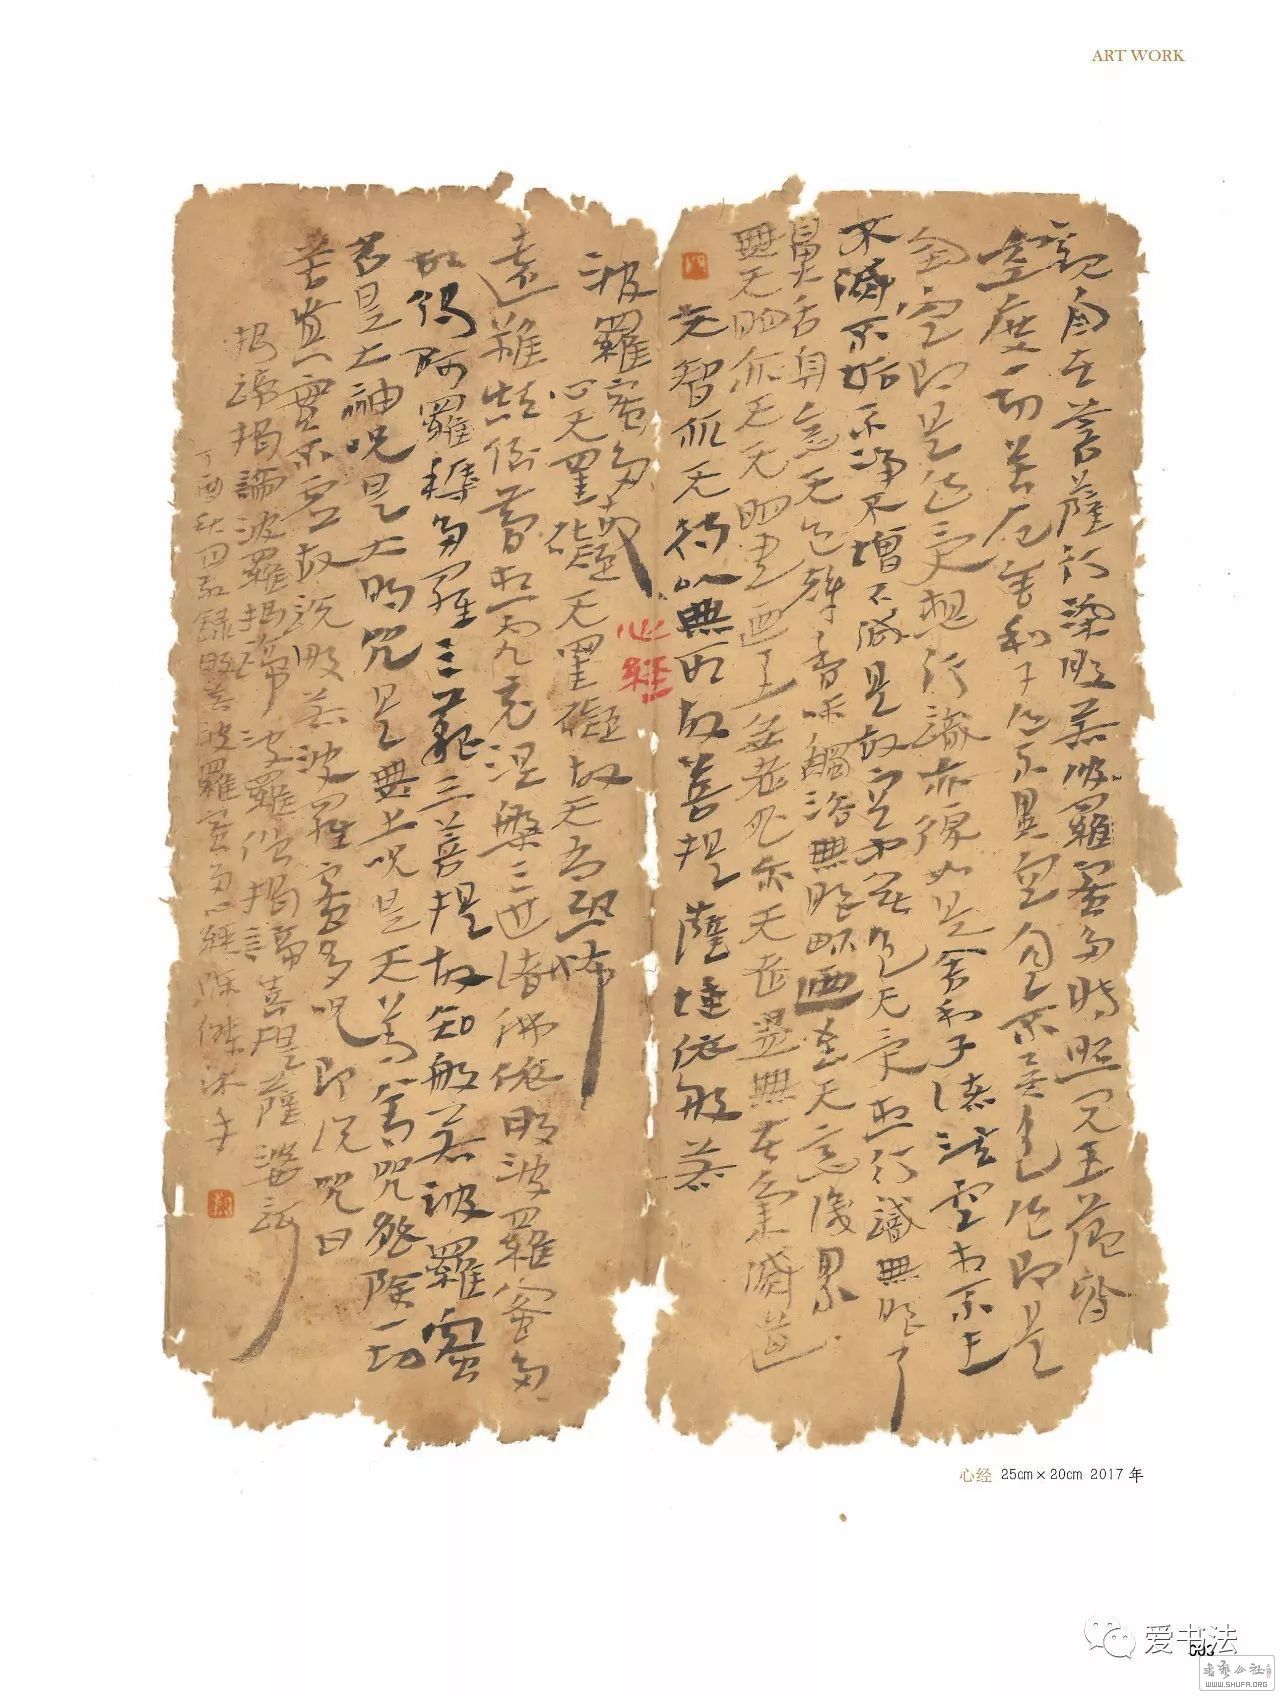 ART WORK
觀自在菩薩行深般若波羅蜜多時照見五蘊皆
空度一切苦厄舍利子色不異空空不異色色即是
空空即是色受想行識亦復如是舍利子是諸法空相不生
不滅不垢不淨不增不減是故空中無色无受想行識無眼耳
鼻舌身意无色聲香味觸法無眼界乃至无意識界
無无明亦无无明盡乃至無老死亦无老死盡無苦集滅道
无智亦无得以無所故菩提薩埵依般若
心經
波羅蜜多故
心无罣礙无罣礙故无有恐怖
遠離顛倒夢想究竟涅槃三世諸佛依般波羅蜜多
故得阿耨多羅三藐三菩提故知般若波羅蜜
若是大神咒是大明咒是無上咒是无等等咒能除一切
苦真實不虛故說般若波羅蜜多咒即說咒曰
揭諦揭諦波羅揭諦波羅僧揭諦菩提薩婆訶
丁酉秋日敬錄般若波羅蜜多心經
心经 25cm×20cm 2017 年
爱书法
WWW.SHUFA.ORG